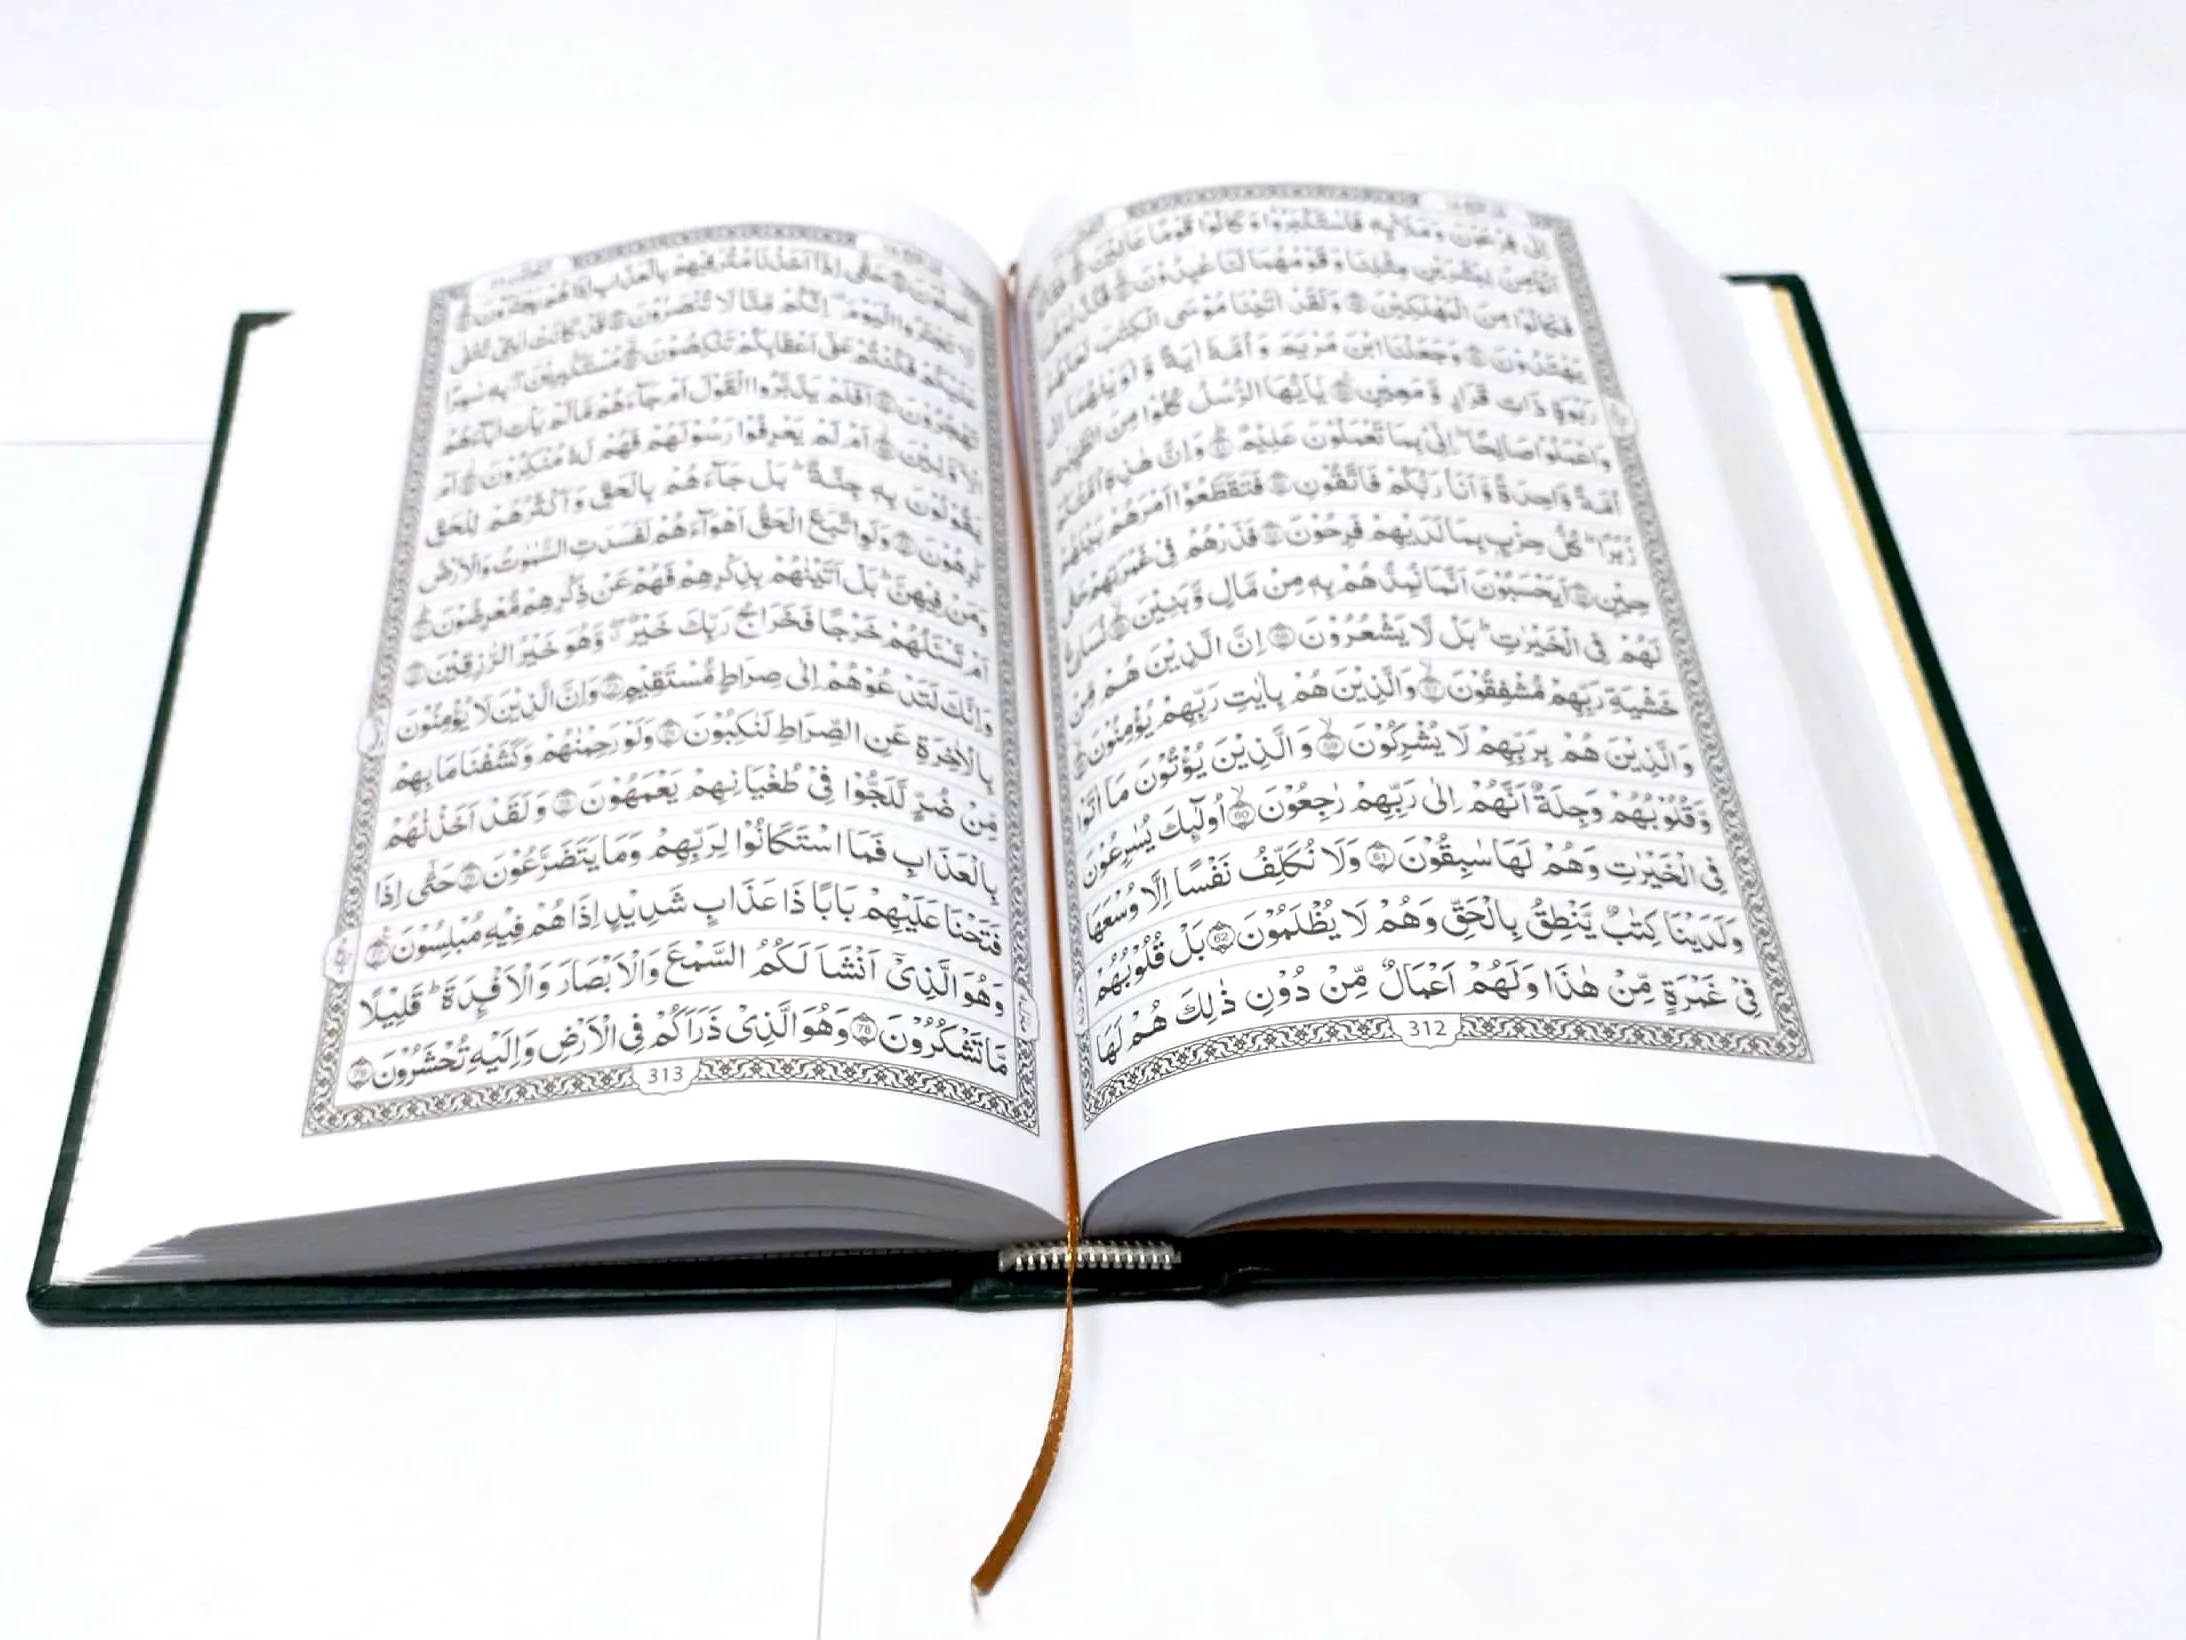 اِلٰى فِرْعَوْنَ وَمَلَا۟ئِهٖ فَاسْتَكْبَرُوْا وَكَانُوْا قَوْمًا عَالِيْنَ
اَنُؤْمِنُ لِبَشَرَيْنِ مِثْلِنَا وَقَوْمُهُمَا لَنَا عٰبِدُوْنَ
فَكَانُوْا مِنَ الْمُهْلَكِيْنَ وَلَقَدْ اٰتَيْنَا مُوْسَى الْكِتٰبَ لَعَلَّهُمْ
يَهْتَدُوْنَ وَجَعَلْنَا ابْنَ مَرْيَمَ وَاُمَّهٗٓ اٰيَةً وَّاٰوَيْنٰهُمَآ اِلٰى
رَبْوَةٍ ذَاتِ قَرَارٍ وَّمَعِيْنٍ يٰٓاَيُّهَا الرُّسُلُ كُلُوْا مِنَ الطَّيِّبٰتِ
وَاعْمَلُوْا صَالِحًا اِنِّيْ بِمَا تَعْمَلُوْنَ عَلِيْمٌ وَاِنَّ هٰذِهٖٓ اُمَّتُكُمْ
اُمَّةً وَّاحِدَةً وَّاَنَا رَبُّكُمْ فَاتَّقُوْنِ فَتَقَطَّعُوْٓا اَمْرَهُمْ بَيْنَهُمْ
زُبُرًا كُلُّ حِزْبٍۢ بِمَا لَدَيْهِمْ فَرِحُوْنَ فَذَرْهُمْ فِيْ غَمْرَتِهِمْ حَتّٰى
حِيْنٍ اَيَحْسَبُوْنَ اَنَّمَا نُمِدُّهُمْ بِهٖ مِنْ مَّالٍ وَّبَنِيْنَ نُسَارِعُ
لَهُمْ فِي الْخَيْرٰتِ بَلْ لَّا يَشْعُرُوْنَ اِنَّ الَّذِيْنَ هُمْ مِّنْ
خَشْيَةِ رَبِّهِمْ مُّشْفِقُوْنَ وَالَّذِيْنَ هُمْ بِاٰيٰتِ رَبِّهِمْ يُؤْمِنُوْنَ
وَالَّذِيْنَ هُمْ بِرَبِّهِمْ لَا يُشْرِكُوْنَ 59 وَالَّذِيْنَ يُؤْتُوْنَ مَآ اٰتَوْا
وَّقُلُوْبُهُمْ وَجِلَةٌ اَنَّهُمْ اِلٰى رَبِّهِمْ رٰجِعُوْنَ 60 اُولٰٓئِكَ يُسٰرِعُوْنَ
فِي الْخَيْرٰتِ وَهُمْ لَهَا سٰبِقُوْنَ 61 وَلَا نُكَلِّفُ نَفْسًا اِلَّا وُسْعَهَا
وَلَدَيْنَا كِتٰبٌ يَّنْطِقُ بِالْحَقِّ وَهُمْ لَا يُظْلَمُوْنَ 62 بَلْ قُلُوْبُهُمْ
فِيْ غَمْرَةٍ مِّنْ هٰذَا وَلَهُمْ اَعْمَالٌ مِّنْ دُوْنِ ذٰلِكَ هُمْ لَهَا
312
عٰمِلُوْنَ حَتّٰٓى اِذَآ اَخَذْنَا مُتْرَفِيْهِمْ بِالْعَذَابِ اِذَا هُمْ يَجْـَٔرُوْنَ
لَا تَجْـَٔرُوا الْيَوْمَ اِنَّكُمْ مِّنَّا لَا تُنْصَرُوْنَ قَدْ كَانَتْ اٰيٰتِيْ تُتْلٰى
عَلَيْكُمْ فَكُنْتُمْ عَلٰٓى اَعْقَابِكُمْ تَنْكِصُوْنَ مُسْتَكْبِرِيْنَ بِهٖ سٰمِرًا
تَهْجُرُوْنَ اَفَلَمْ يَدَّبَّرُوا الْقَوْلَ اَمْ جَآءَهُمْ مَّا لَمْ يَاْتِ اٰبَآءَهُمُ
الْاَوَّلِيْنَ اَمْ لَمْ يَعْرِفُوْا رَسُوْلَهُمْ فَهُمْ لَهٗ مُنْكِرُوْنَ اَمْ
يَقُوْلُوْنَ بِهٖ جِنَّةٌ بَلْ جَآءَهُمْ بِالْحَقِّ وَاَكْثَرُهُمْ لِلْحَقِّ
كٰرِهُوْنَ وَلَوِ اتَّبَعَ الْحَقُّ اَهْوَآءَهُمْ لَفَسَدَتِ السَّمٰوٰتُ وَالْاَرْضُ
وَمَنْ فِيْهِنَّ بَلْ اَتَيْنٰهُمْ بِذِكْرِهِمْ فَهُمْ عَنْ ذِكْرِهِمْ مُّعْرِضُوْنَ
اَمْ تَسْـَٔلُهُمْ خَرْجًا فَخَرَاجُ رَبِّكَ خَيْرٌ وَّهُوَ خَيْرُ الرّٰزِقِيْنَ
وَاِنَّكَ لَتَدْعُوْهُمْ اِلٰى صِرَاطٍ مُّسْتَقِيْمٍ وَاِنَّ الَّذِيْنَ لَا يُؤْمِنُوْنَ
بِالْاٰخِرَةِ عَنِ الصِّرَاطِ لَنٰكِبُوْنَ وَلَوْ رَحِمْنٰهُمْ وَكَشَفْنَا مَا بِهِمْ
مِّنْ ضُرٍّ لَّلَجُّوْا فِيْ طُغْيَانِهِمْ يَعْمَهُوْنَ وَلَقَدْ اَخَذْنٰهُمْ
بِالْعَذَابِ فَمَا اسْتَكَانُوْا لِرَبِّهِمْ وَمَا يَتَضَرَّعُوْنَ حَتّٰٓى اِذَا
فَتَحْنَا عَلَيْهِمْ بَابًا ذَا عَذَابٍ شَدِيْدٍ اِذَا هُمْ فِيْهِ مُبْلِسُوْنَ
وَهُوَ الَّذِيْٓ اَنْشَاَ لَكُمُ السَّمْعَ وَالْاَبْصَارَ وَالْاَفْـِٕدَةَ قَلِيْلًا
مَّا تَشْكُرُوْنَ 78 وَهُوَ الَّذِيْ ذَرَاَكُمْ فِي الْاَرْضِ وَاِلَيْهِ تُحْشَرُوْنَ 79
313